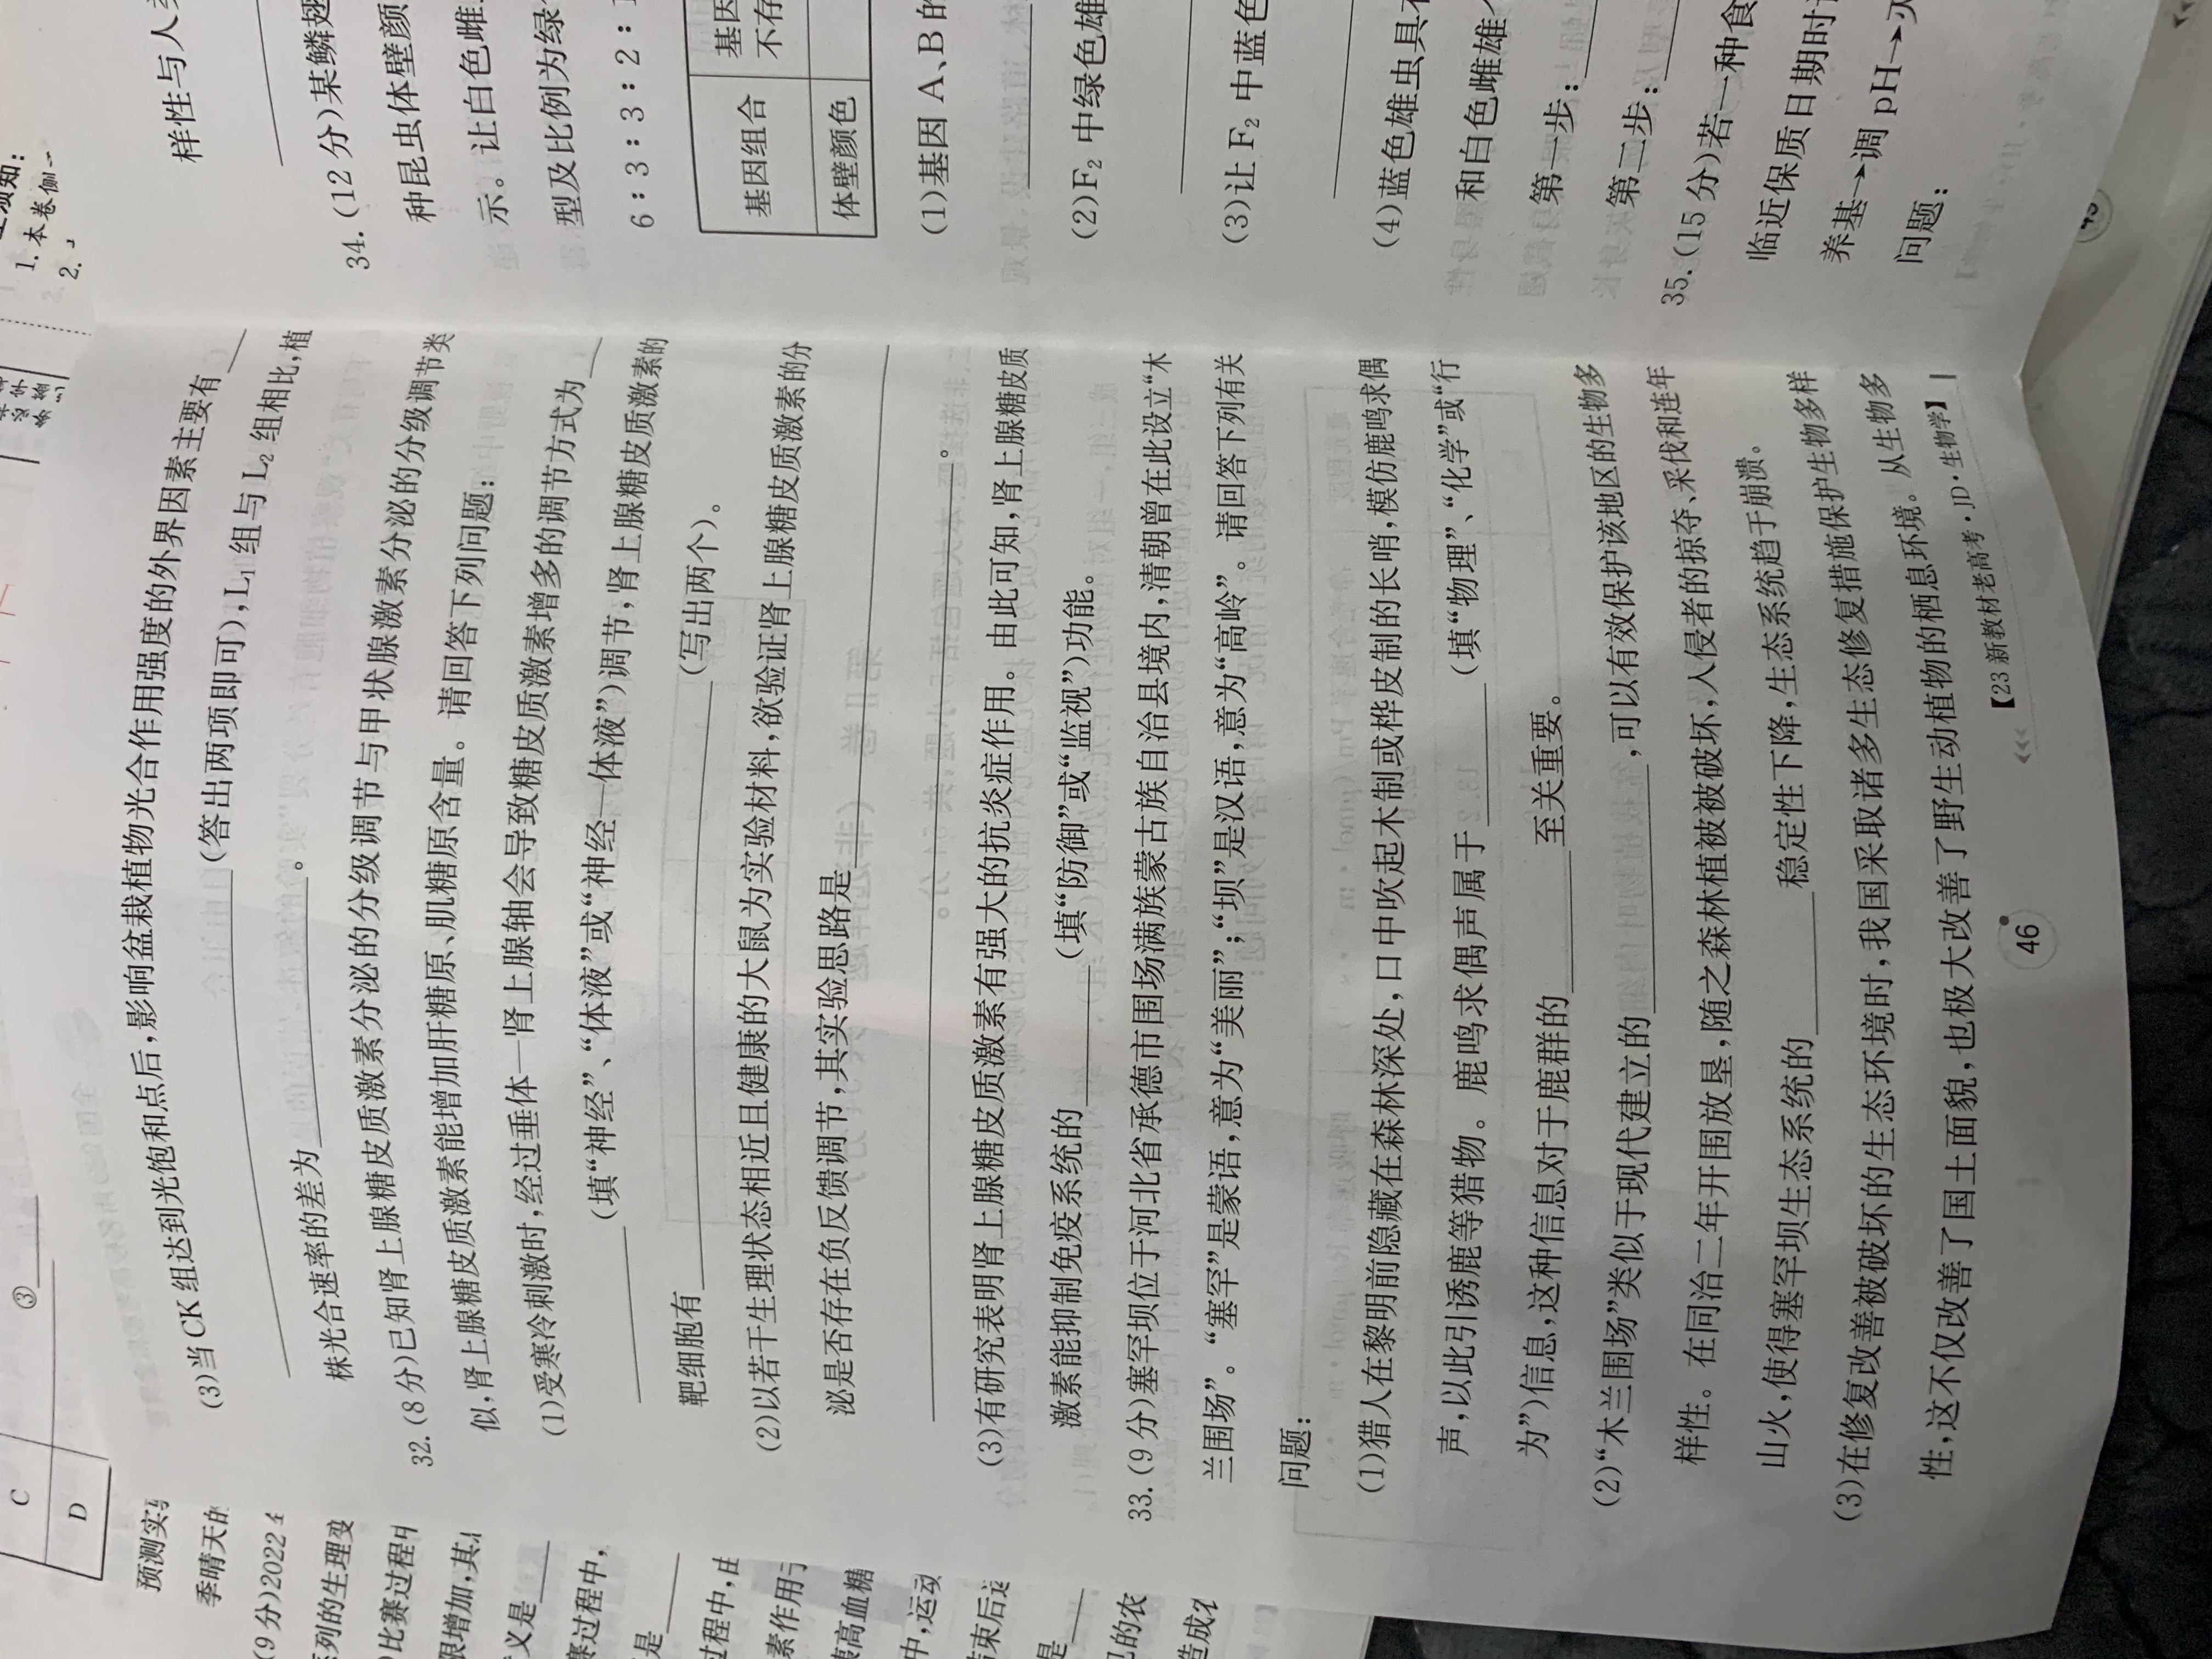 ③
C
D
预测实
季晴天的
(9分)2022
系列的生理变
比赛过程中
限增加,其
义是
赛过程中,
是
过程中,由
素作用于
胰高血糖
中,运动
结束后运
是
的农
造成
(3)当CK组达到光饱和点后,影响盆栽植物光合作用强度的外界因素主要有
(答出两项即可),L₁组与L₂组相比,植
株光合速率的差为。
32.(8分)已知肾上腺糖皮质激素分泌的分级调节与甲状腺激素分泌的分级调节类
似,肾上腺糖皮质激素能增加肝糖原、肌糖原含量。请回答下列问题:
(1)受寒冷刺激时,经过垂体—肾上腺轴会导致糖皮质激素增多的调节方式为
(填“神经”、“体液”或“神经—体液”)调节,肾上腺糖皮质激素的
靶细胞有(写出两个)。
(2)以若干生理状态相近且健康的大鼠为实验材料,欲验证肾上腺糖皮质激素的分
泌是否存在负反馈调节,其实验思路是
。
(3)有研究表明肾上腺糖皮质激素有强大的抗炎症作用。由此可知,肾上腺糖皮质
激素能抑制免疫系统的(填“防御”或“监视”)功能。
33.(9分)塞罕坝位于河北省承德市围场满族蒙古族自治县境内,清朝曾在此设立“木
兰围场”。“塞罕”是蒙语,意为“美丽”;“坝”是汉语,意为“高岭”。请回答下列有关
问题:
(1)猎人在黎明前隐藏在森林深处,口中吹起木制或桦皮制的长哨,模仿鹿鸣求偶
声,以此引诱鹿等猎物。鹿鸣求偶声属于(填“物理”、“化学”或“行
为”)信息,这种信息对于鹿群的至关重要。
(2)“木兰围场”类似于现代建立的,可以有效保护该地区的生物多
样性。在同治二年开围放垦,随之森林植被被破坏,入侵者的掠夺、采伐和连年
山火,使得塞罕坝生态系统的稳定性下降,生态系统趋于崩溃。
(3)在修复改善被破坏的生态环境时,我国采取诸多生态修复措施保护生物多样
性,这不仅改善了国土面貌,也极大改善了野生动植物的栖息环境。从生物多
46
【23新教材老高考·JD·生物学】
知:
1.本卷侧
2.
样性与人
34.(12分)某鳞翅
种昆虫体壁颜
示。让白色雌
型及比例为绿
6:3:3:2:
基因组合
基因
不存
体壁颜色
(1)基因A、B的
(2)F₂中绿色雄
(3)让F₂中蓝色
(4)蓝色雄虫具有
和白色雌雄
第一步:
第二步:
35.(15分)若一种食
临近保质日期时
养基→调pH→灭
问题: